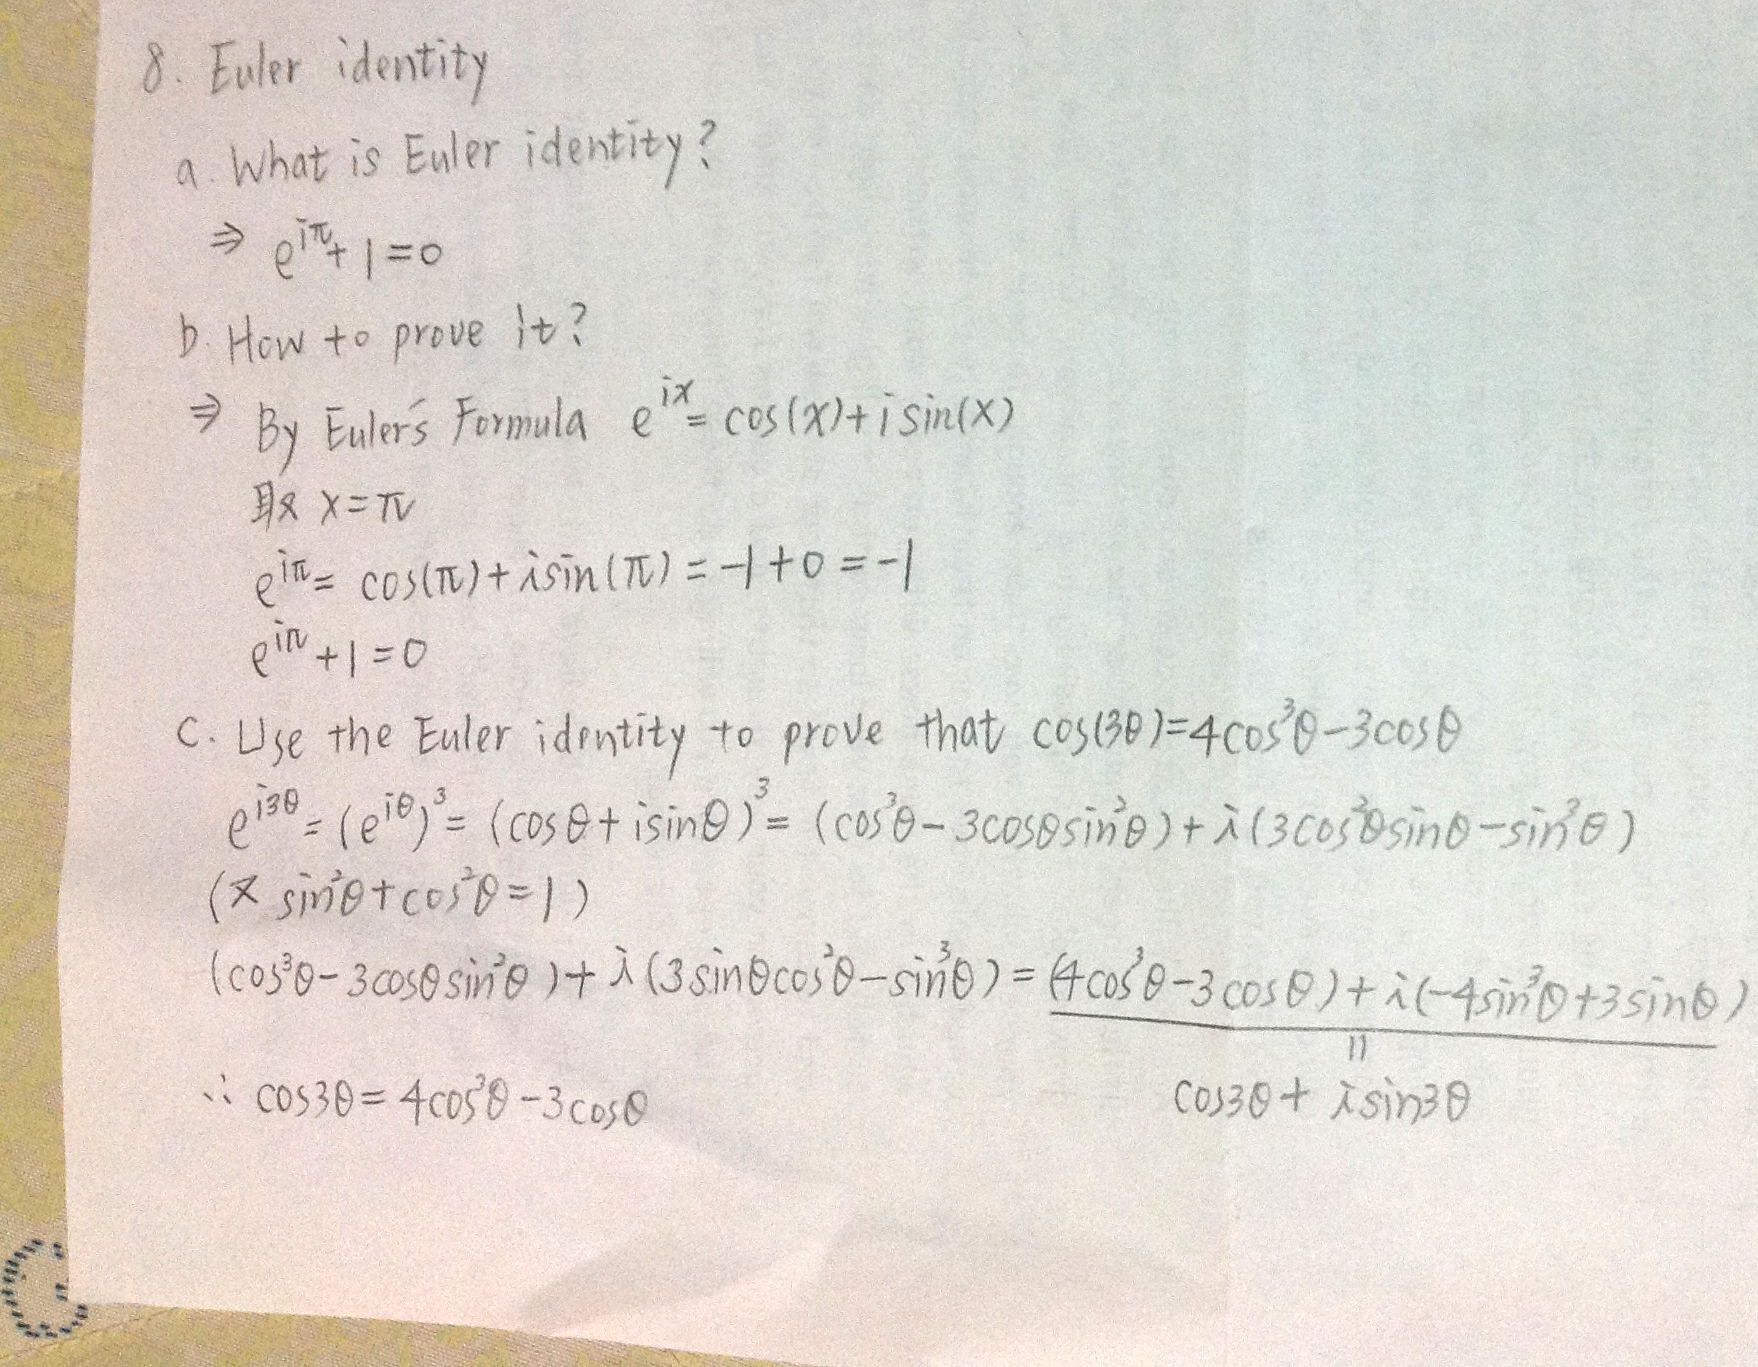 8. Euler identity
a. What is Euler identity?
⇒ e^{iπ}+1=0
b. How to prove it?
⇒ By Euler's Formula e^{ix}=cos(x)+i sin(x)
取 x=π
e^{iπ}=cos(π)+isin(π)=-1+0=-1
e^{iπ}+1=0
C. Use the Euler identity to prove that cos(3θ)=4cos³θ-3cosθ
e^{i3θ}=(e^{iθ})³=(cosθ+isinθ)³=(cos³θ-3cosθsin²θ)+i(3cos²θsinθ-sin³θ)
(又 sin²θ+cos²θ=1)
(cos³θ-3cosθsin²θ)+i(3sinθcos²θ-sin³θ)=(4cos³θ-3cosθ)+i(-4sin³θ+3sinθ)
=
∴ cos3θ=4cos³θ-3cosθ
cos3θ+isin3θ